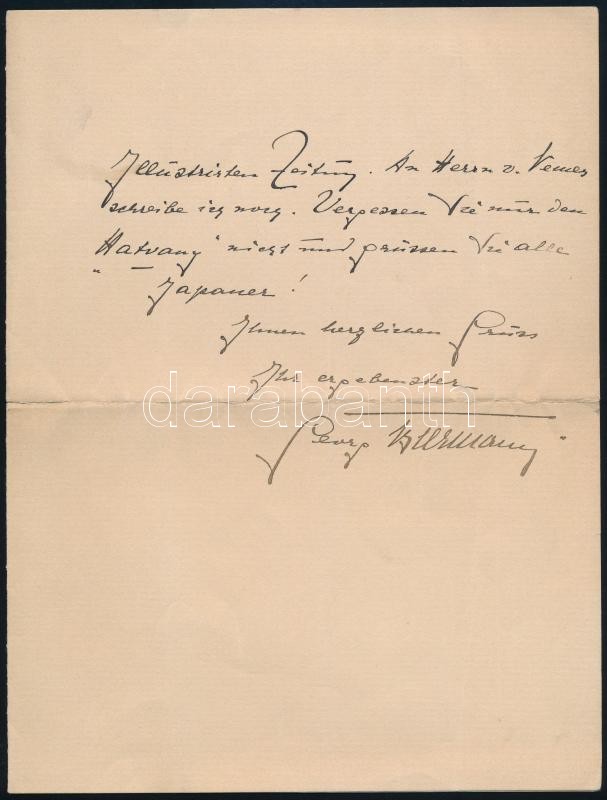 Illustrirten Zeitung. An Herrn v. Nemes
schreibe ich noch. Vergessen Sie nur den
Hatvany" nicht und grüssen Sie alle
"Japaner!
Ihnen herzlichen Gruss
Ihr ergebenster
darabanth
Georg